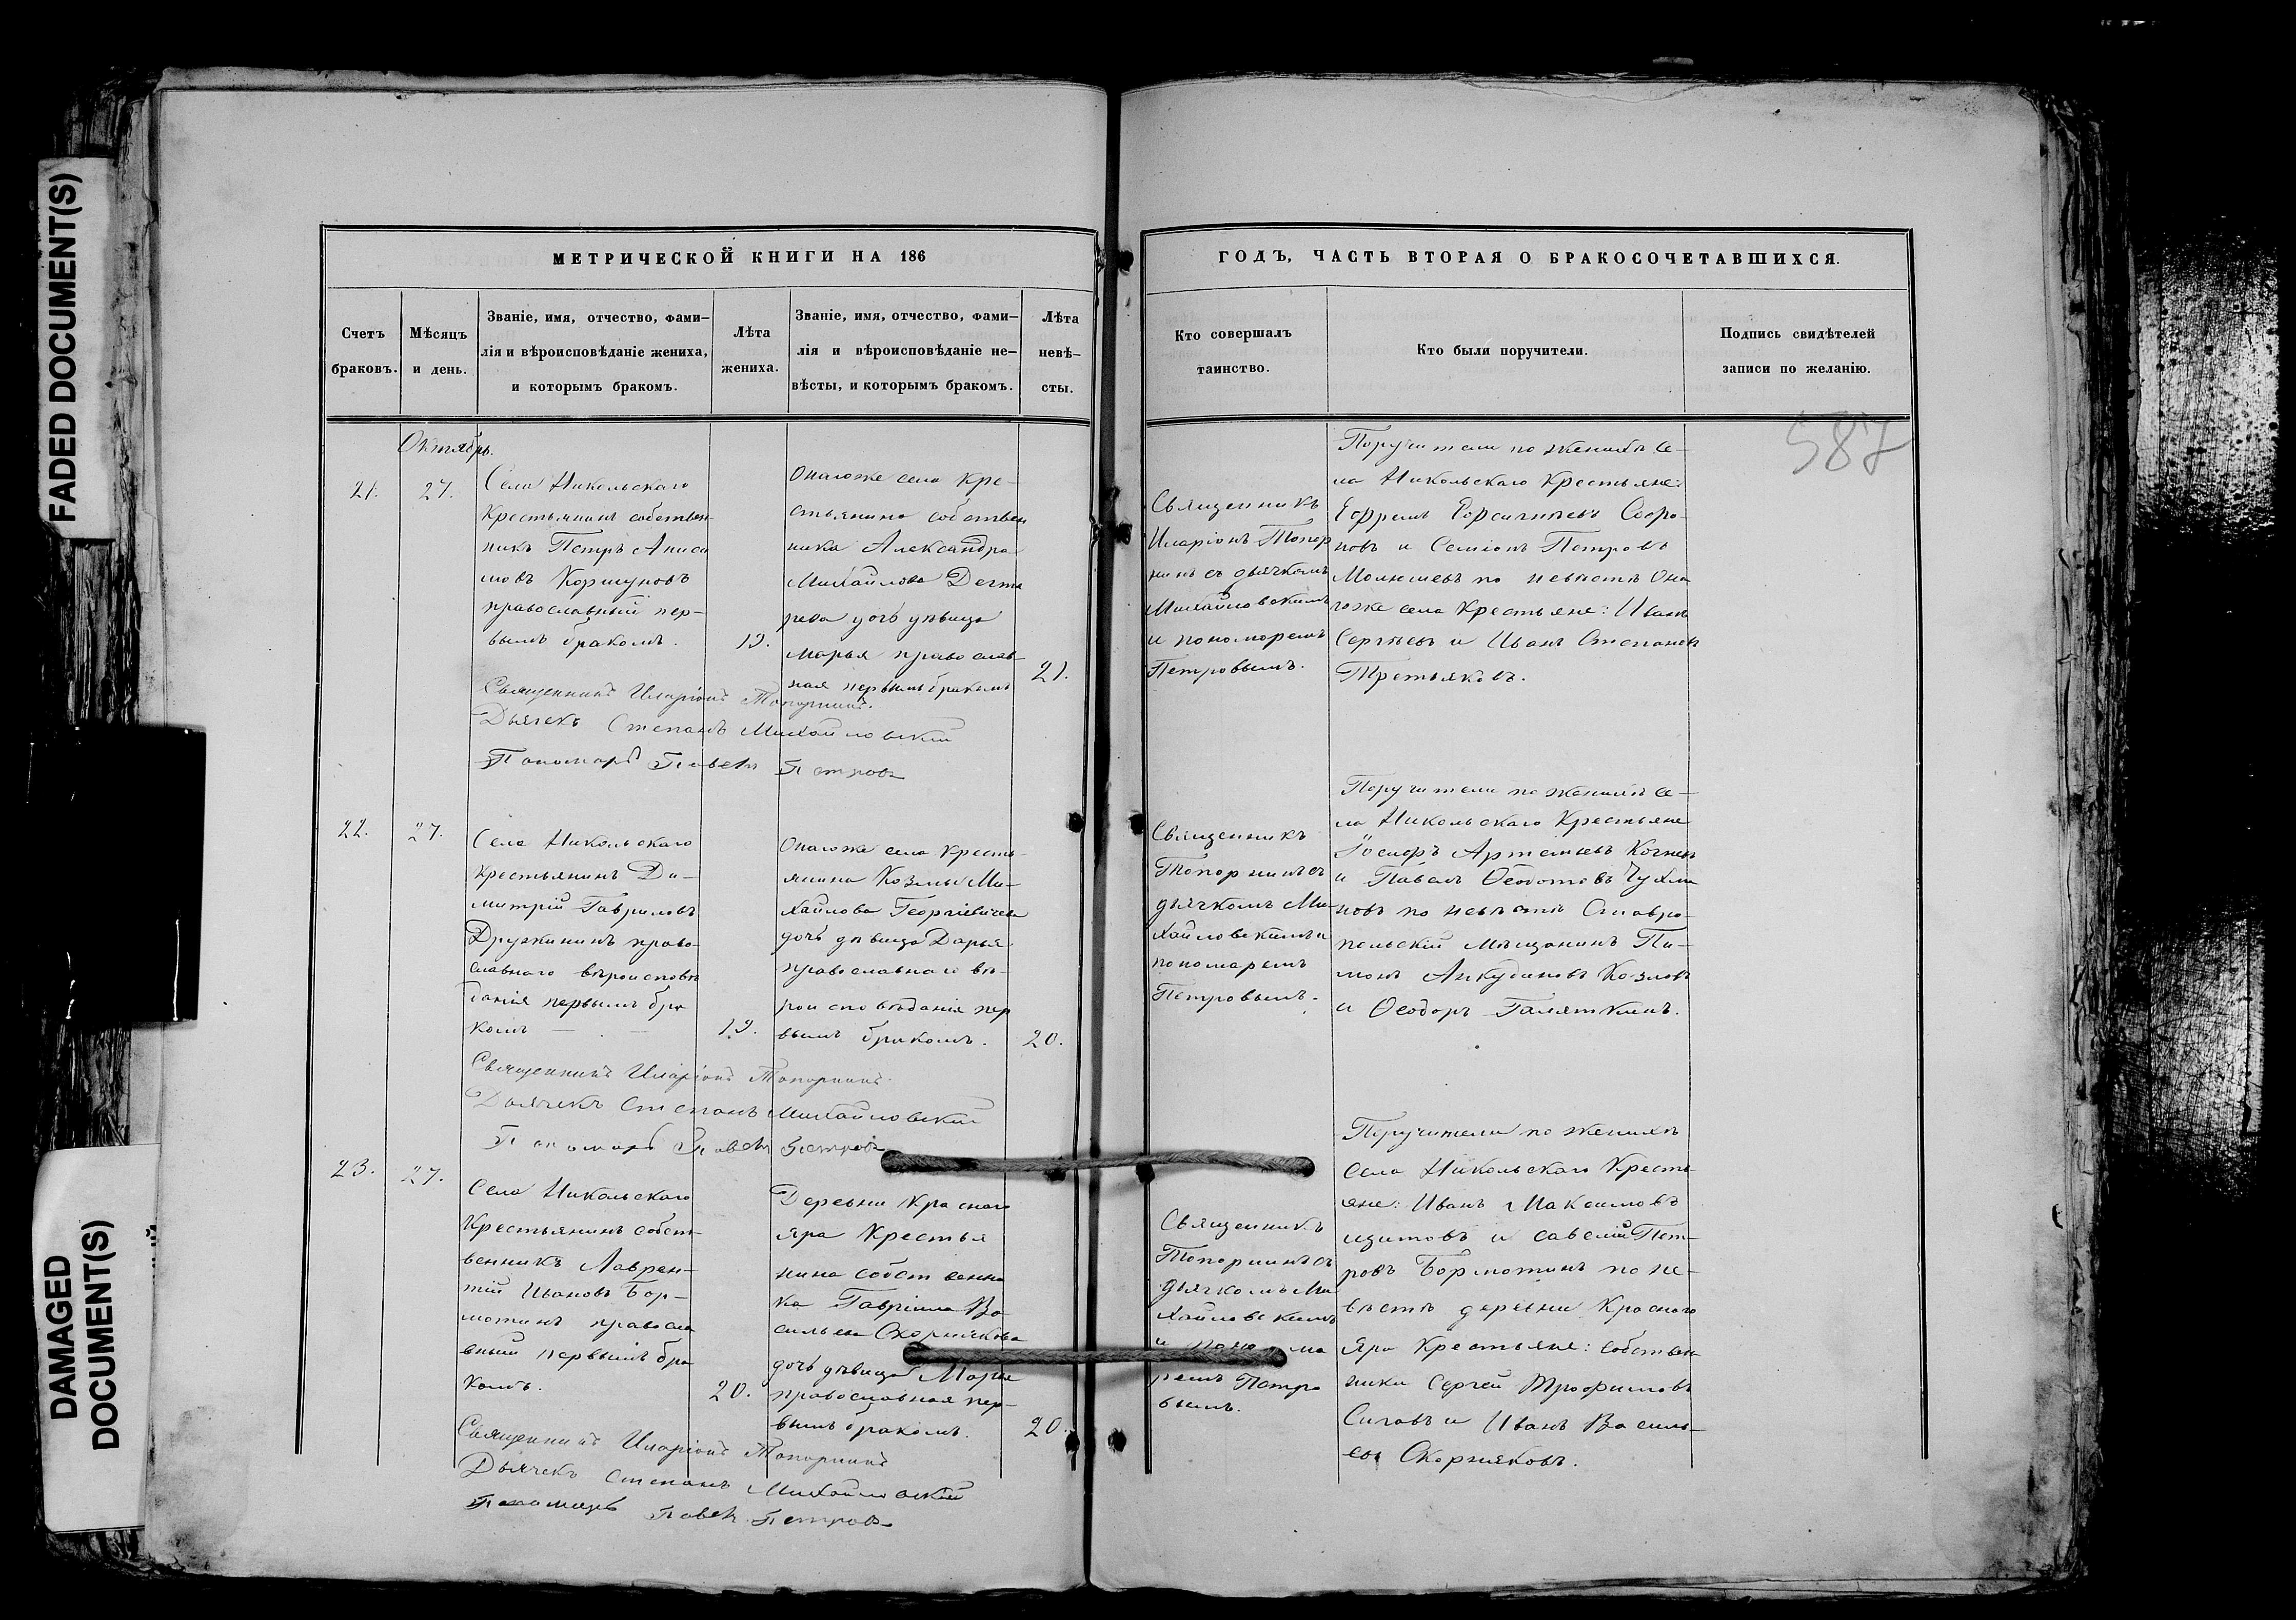 FADED DOCUMENT(S)
DAMAGED
DOCUMENT(S)
МЕТРИЧЕСКОЙ КНИГИ НА 186
Счетъ
браковъ.
Мѣсяцъ
и день.
Званіе, имя, отчество, фами-
лія и вѣроисповѣданіе жениха,
и которымъ бракомъ.
Лѣта
жениха.
Званіе, имя, отчество, фами-
лія и вѣроисповѣданіе не-
вѣсты, и которымъ бракомъ.
Лѣта
невѣ-
сты.
ГОДЪ, ЧАСТЬ ВТОРАЯ О БРАКОСОЧЕТАВШИХСЯ.
Кто совершалъ
таинство.
Кто были поручители.
Подпись свидѣтелей
записи по желанію.
587
Октябрь.
21.
27.
Села Никольскаго
Крестьянинъ собствен-
никъ Петръ Аниси
мовъ Коршуновъ
православный пер-
вымъ бракомъ.
19.
Онагоже села Кре-
стьянина собствен
ника Александра
Михайлова Дегтя
рева дочь дѣвица
Марья православ-
ная первымъ бракомъ
21.
Священникъ
Иларіонъ Топор
нинъ съ дьячкомъ
Михайловскимъ
и пономаремъ
Петровымъ.
Поручители по женихѣ се-
ла Никольскаго Крестьяне:
Ефремъ Софро-
новъ и Семіонъ Петровъ
по невѣстѣ Она
гоже села Крестьяне: Иванъ
Сергѣевъ и Иванъ Степановъ
Третьяковъ.
Священникъ Иларіонъ Топорнинъ.
Дьячекъ Степанъ Михайловский
Пономарь Павелъ Петровъ
22.
27.
Села Никольскаго
Крестьянинъ Ди-
митрій Гавриловъ
Дружининъ право-
славнаго вѣроисповѣ
данія первымъ бра
комъ
19.
Онагоже села Кресть-
янина Козмы Ми-
хайлова Георгіевичева
дочь дѣвица Дарья
православнаго вѣ-
роисповѣданія пер
вымъ бракомъ.
20.
Священникъ
Топорнинъ съ
дьячкомъ Ми-
хайловскимъ и
пономаремъ
Петровымъ.
Поручители по женихѣ се-
ла Никольскаго Крестьяне
Іосифъ Артемьевъ
и Павелъ Ѳеодотовъ Чухма
новъ по невѣстѣ Ставро-
польскій мѣщанинъ Пи-
монъ Анкудиновъ Козловъ
и Ѳеодоръ Галяткинъ.
Священникъ Иларіонъ Топорнинъ.
Дьячекъ Степанъ Михайловский
Пономарь Павелъ Петровъ
23.
27.
Села Никольскаго
Крестьянинъ собст-
венникъ Лаврен-
тій Ивановъ Бор-
мотинъ правосла
вный первымъ бра
комъ.
20.
Деревни Краснаго
Яра Крестья
нина собственни
ка Гавріила Ва
сильева Скорнякова
дочь дѣвица Марья
православная пер-
вымъ бракомъ.
20.
Священникъ
Топорнинъ съ
дьячкомъ Ми
хайловскимъ
и понома
ремъ Петро
вымъ.
Поручители по женихѣ
Села Никольскаго Кресть-
яне: Иванъ Максимовъ
и Савелій Пет-
ровъ Бормотинъ по не-
вѣстѣ деревни Краснаго
Яра Крестьяне: собствен
ники Сергей Трофимовъ
и Иванъ Василь-
евъ Скорняковъ.
Священникъ Иларіонъ Топорнинъ
Дьячекъ Степанъ Михайловский
Пономарь Павелъ Петровъ